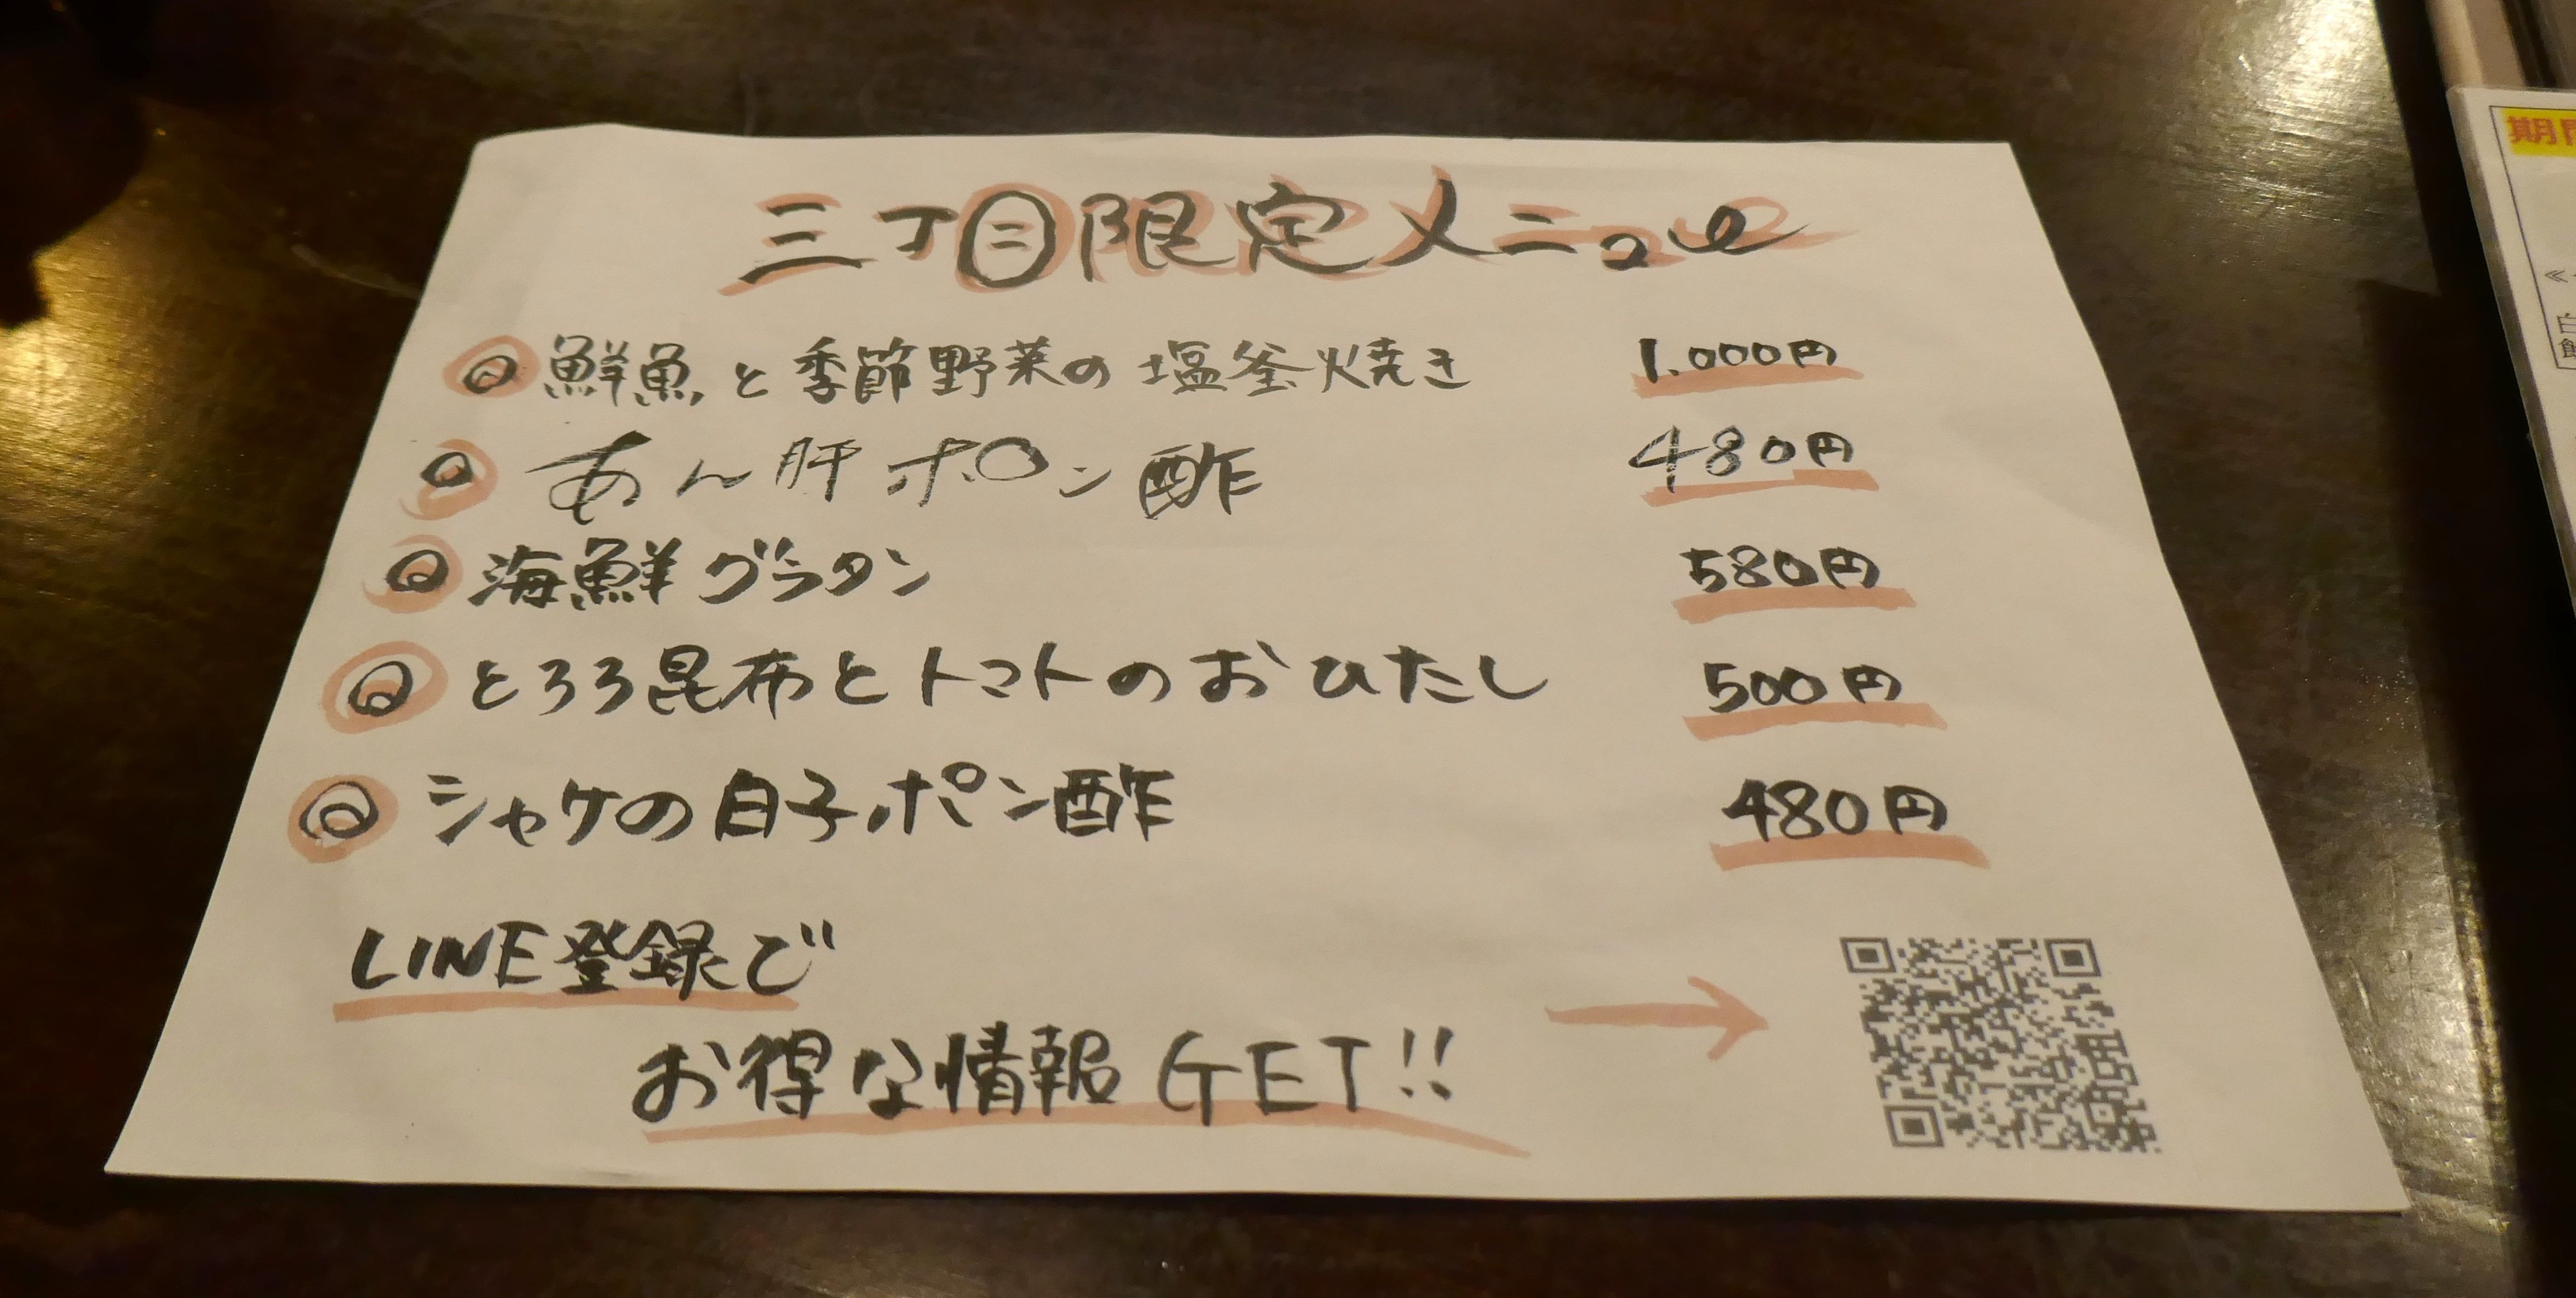 三丁目限定メニュー
鮮魚と季節野菜の塩釜焼き 1.000円
あん肝ポン酢 480円
海鮮グラタン 580円
とろろ昆布とトマトのおひたし 500円
シャケの白子ポン酢 480円
LINE登録で
お得な情報GET!!